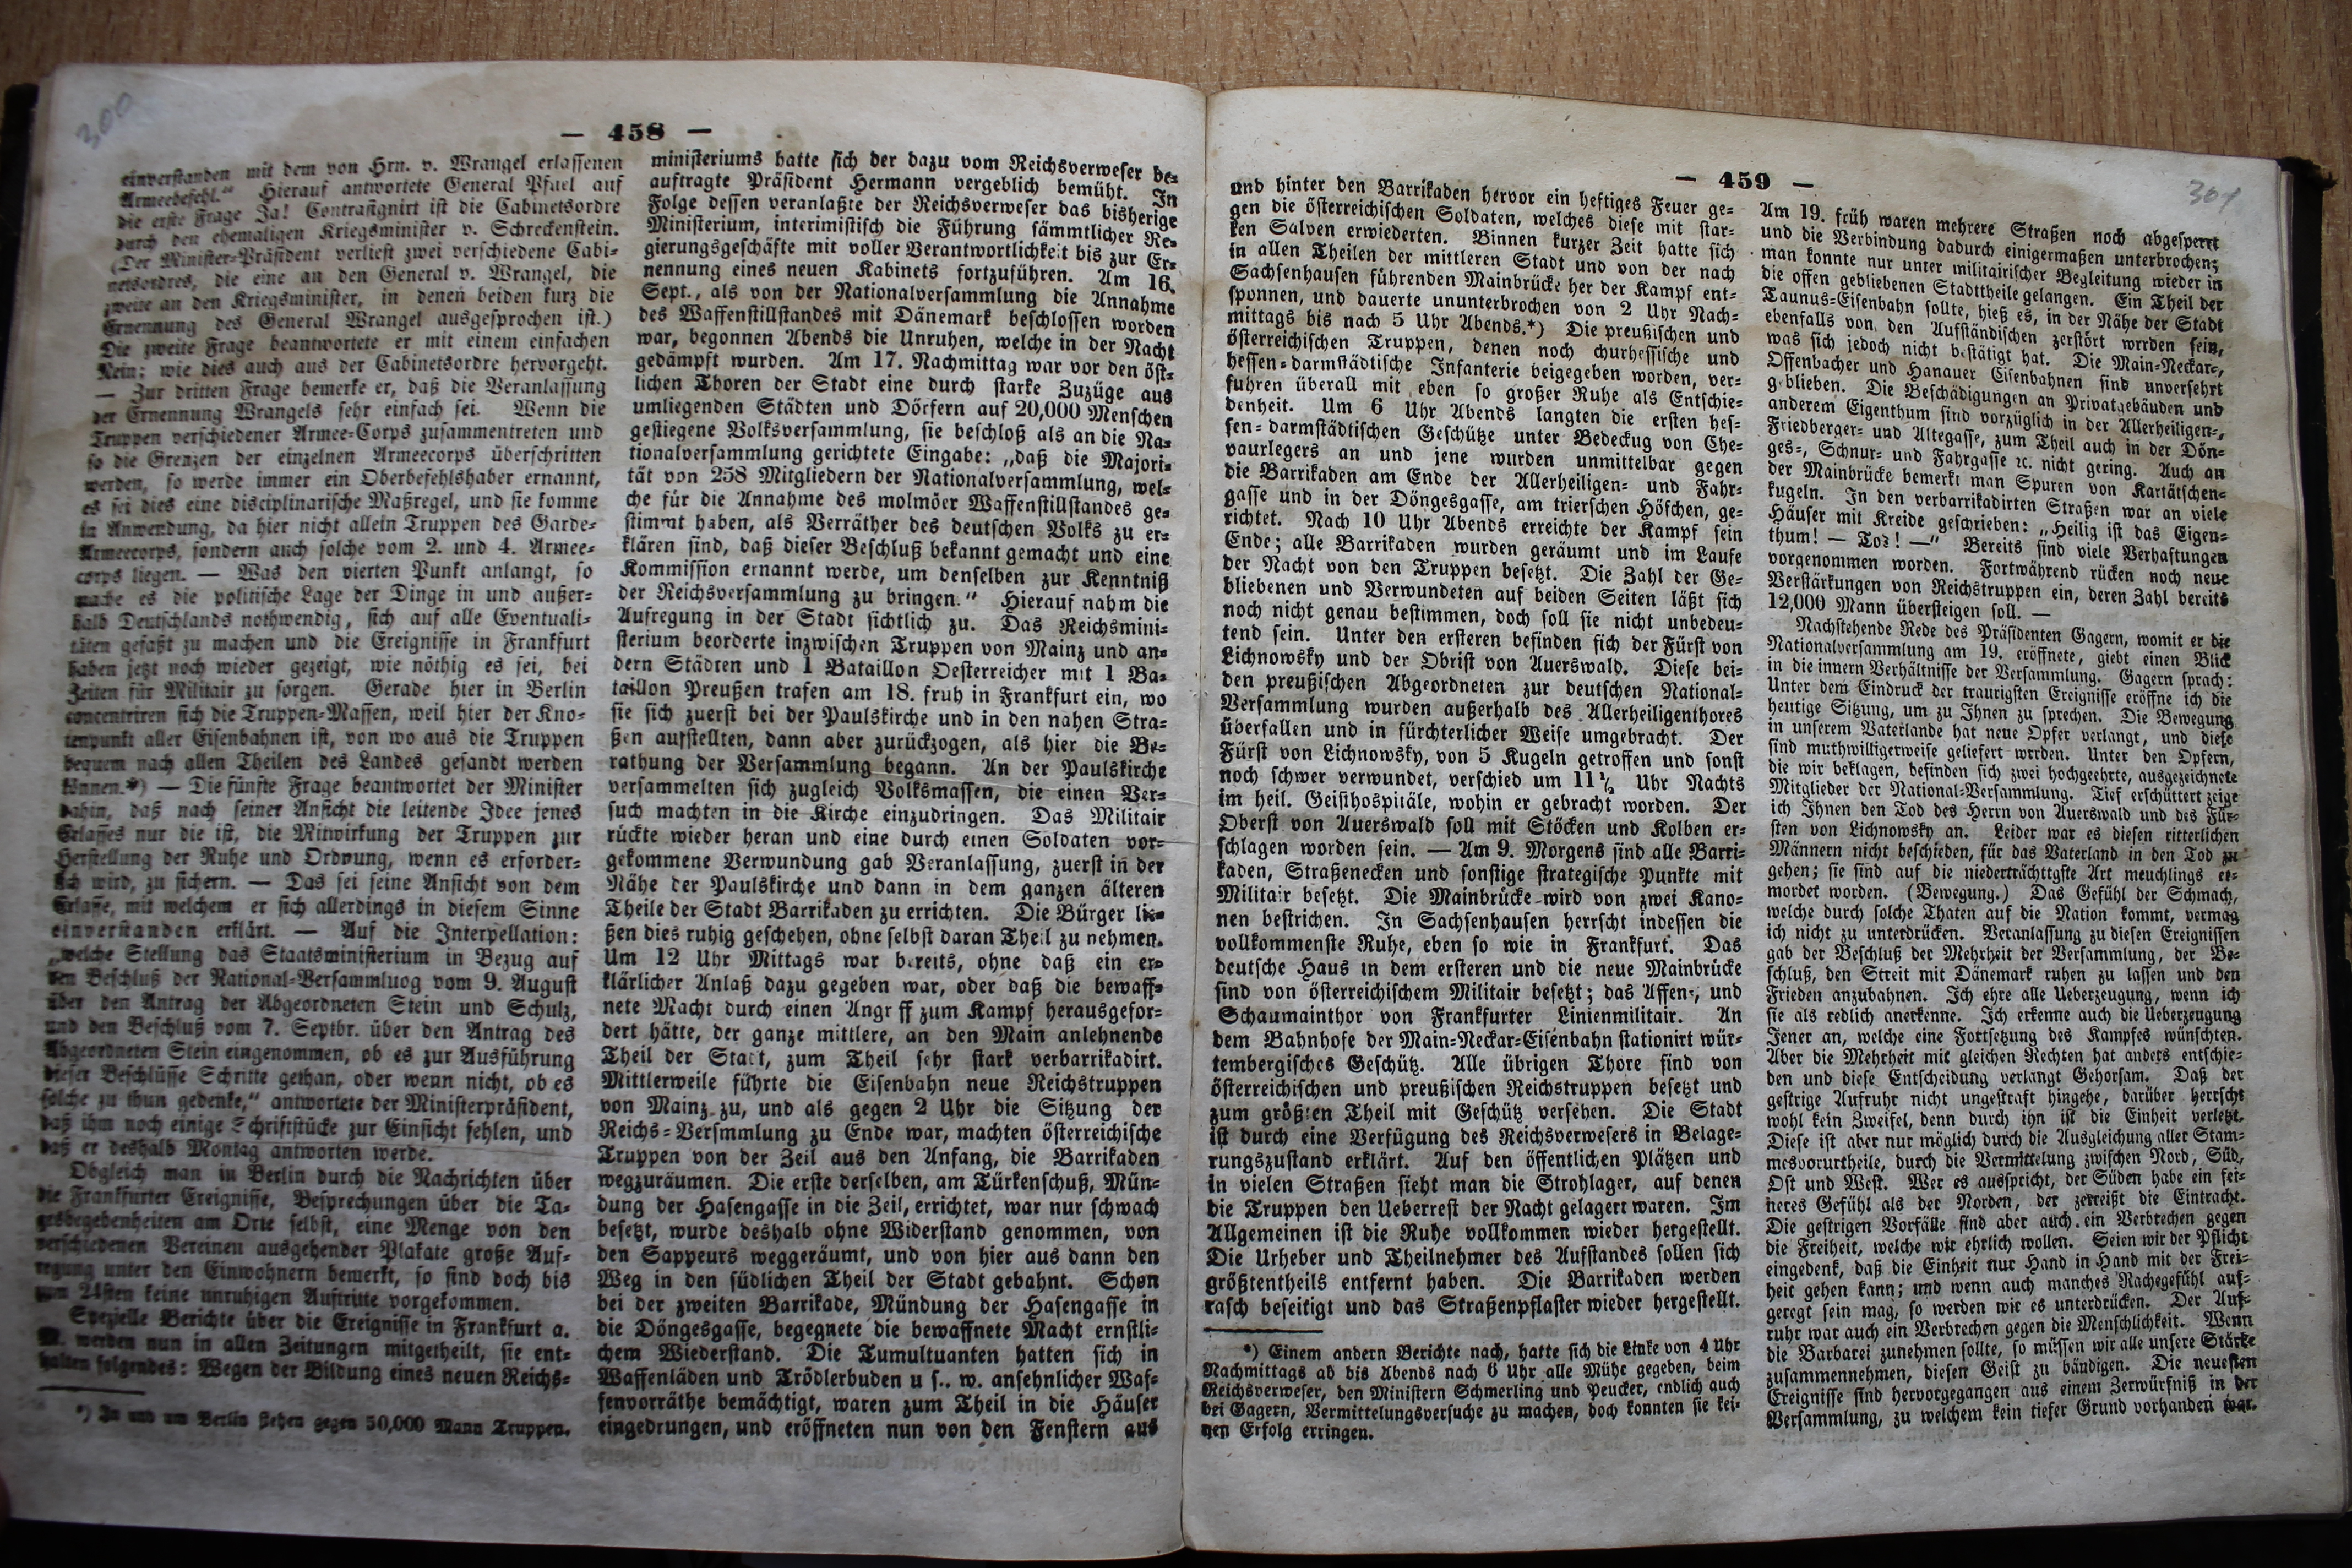 300
— 458 —
einverstanden mit dem von Hrn. v. Wrangel erlassenen
Armeebefehl.“ Hierauf antwortete General Pfuel auf
die erste Frage Ja! Contrasignirt ist die Cabinetsordre
durch den ehemaligen Kriegsminister v. Schreckenstein.
(Der Minister-Präsident verliest zwei verschiedene Cabi-
netsordres, die eine an den General v. Wrangel, die
zweite an den Kriegsminister, in denen beiden kurz die
Ernennung des General Wrangel ausgesprochen ist.)
Die zweite Frage beantwortete er mit einem einfachen
Nein; wie dies auch aus der Cabinetsordre hervorgeht.
— Zur dritten Frage bemerke er, daß die Veranlassung
der Ernennung Wrangels sehr einfach sei. Wenn die
Truppen verschiedener Armee-Corps zusammentreten und
so die Grenzen der einzelnen Armeecorps überschritten
werden, so werde immer ein Oberbefehlshaber ernannt,
es sei dies eine disciplinarische Maßregel, und sie komme
in Anwendung, da hier nicht allein Truppen des Garde-
Armeecorps, sondern auch solche vom 2. und 4. Armee-
corps liegen. — Was den vierten Punkt anlangt, so
mache es die politische Lage der Dinge in und außer-
halb Deutschlands nothwendig, sich auf alle Eventuali-
täten gefaßt zu machen und die Ereignisse in Frankfurt
haben jetzt noch wieder gezeigt, wie nöthig es sei, bei
Zeiten für Militair zu sorgen. Gerade hier in Berlin
concentriren sich die Truppen-Massen, weil hier der Kno-
tenpunkt aller Eisenbahnen ist, von wo aus die Truppen
bequem nach allen Theilen des Landes gesandt werden
können.*) — Die fünfte Frage beantwortet der Minister
dahin, daß nach seiner Ansicht die leitende Idee jenes
Erlasses nur die ist, die Mitwirkung der Truppen zur
Herstellung der Ruhe und Ordnung, wenn es erforder-
lich wird, zu sichern. — Das sei seine Ansicht von dem
Erlasse, mit welchem er sich allerdings in diesem Sinne
einverstanden erklärt. — Auf die Interpellation:
„welche Stellung das Staatsministerium in Bezug auf
den Beschluß der National-Versammluog vom 9. August
über den Antrag der Abgeordneten Stein und Schulz,
und den Beschluß vom 7. Septbr. über den Antrag des
Abgeordneten Stein eingenommen, ob es zur Ausführung
dieser Beschlüsse Schritte gethan, oder wenn nicht, ob es
solche zu thun gedenke,“ antwortete der Ministerpräsident,
daß ihm noch einige Schriftstücke zur Einsicht fehlen, und
daß er deshalb Montag antworten werde.
Obgleich man in Berlin durch die Nachrichten über
die Frankfurter Ereignisse, Besprechungen über die Ta-
gesbegebenheiten am Orte selbst, eine Menge von den
verschiedenen Vereinen ausgehender Plakate große Auf-
regung unter den Einwohnern bemerkt, so sind doch bis
zum 24sten keine unruhigen Auftritte vorgekommen.
Spezielle Berichte über die Ereignisse in Frankfurt a.
M. werden nun in allen Zeitungen mitgetheilt, sie ent-
halten folgendes: Wegen der Bildung eines neuen Reichs-
*) In und um Berlin stehen gegen 50,000 Mann Truppen.
ministeriums hatte sich der dazu vom Reichsverweser be-
auftragte Präsident Hermann vergeblich bemüht. In
Folge dessen veranlaßte der Reichsverweser das bisherige
Ministerium, interimistisch die Führung sämmtlicher Re-
gierungsgeschäfte mit voller Verantwortlichkeit bis zur Er-
nennung eines neuen Kabinets fortzuführen. Am 16.
Sept., als von der Nationalversammlung die Annahme
des Waffenstillstandes mit Dänemark beschlossen worden
war, begonnen Abends die Unruhen, welche in der Nacht
gedämpft wurden. Am 17. Nachmittag war vor den öst-
lichen Thoren der Stadt eine durch starke Zuzüge aus
umliegenden Städten und Dörfern auf 20,000 Menschen
gestiegene Volksversammlung, sie beschloß als an die Na-
tionalversammlung gerichtete Eingabe: „daß die Majori-
tät von 258 Mitgliedern der Nationalversammlung, wel-
che für die Annahme des molmöer Waffenstillstandes ge-
stimmt haben, als Verräther des deutschen Volks zu er-
klären sind, daß dieser Beschluß bekannt gemacht und eine
Kommission ernannt werde, um denselben zur Kenntniß
der Reichsversammlung zu bringen.“ Hierauf nahm die
Aufregung in der Stadt sichtlich zu. Das Reichsmini-
sterium beorderte inzwischen Truppen von Mainz und an-
dern Städten und 1 Bataillon Oesterreicher mit 1 Ba-
taillon Preußen trafen am 18. früh in Frankfurt ein, wo
sie sich zuerst bei der Paulskirche und in den nahen Stra-
ßen aufstellten, dann aber zurückzogen, als hier die Be-
rathung der Versammlung begann. An der Paulskirche
versammelten sich zugleich Volksmassen, die einen Ver-
such machten in die Kirche einzudringen. Das Militair
rückte wieder heran und eine durch einen Soldaten vor-
gekommene Verwundung gab Veranlassung, zuerst in der
Nähe der Paulskirche und dann in dem ganzen älteren
Theile der Stadt Barrikaden zu errichten. Die Bürger lie-
ßen dies ruhig geschehen, ohne selbst daran Theil zu nehmen.
Um 12 Uhr Mittags war bereits, ohne daß ein er-
klärlicher Anlaß dazu gegeben war, oder daß die bewaff-
nete Macht durch einen Angr ff zum Kampf herausgefor-
dert hätte, der ganze mittlere, an den Main anlehnende
Theil der Stadt, zum Theil sehr stark verbarrikadirt.
Mittlerweile führte die Eisenbahn neue Reichstruppen
von Mainz zu, und als gegen 2 Uhr die Sitzung der
Reichs-Versmmlung zu Ende war, machten österreichische
Truppen von der Zeil aus den Anfang, die Barrikaden
wegzuräumen. Die erste derselben, am Türkenschuß, Mün-
dung der Hasengasse in die Zeil, errichtet, war nur schwach
besetzt, wurde deshalb ohne Widerstand genommen, von
den Sappeurs weggeräumt, und von hier aus dann den
Weg in den südlichen Theil der Stadt gebahnt. Schon
bei der zweiten Barrikade, Mündung der Hasengasse in
die Döngesgasse, begegnete die bewaffnete Macht ernstli-
chem Wiederstand. Die Tumultuanten hatten sich in
Waffenläden und Trödlerbuden u s.. w. ansehnlicher Waf-
fenvorräthe bemächtigt, waren zum Theil in die Häuser
eingedrungen, und eröffneten nun von den Fenstern aus
301
— 459 —
und hinter den Barrikaden hervor ein heftiges Feuer ge-
gen die österreichischen Soldaten, welches diese mit star-
ken Salven erwiederten. Binnen kurzer Zeit hatte sich
in allen Theilen der mittleren Stadt und von der nach
Sachsenhausen führenden Mainbrücke her der Kampf ent-
sponnen, und dauerte ununterbrochen von 2 Uhr Nach-
mittags bis nach 5 Uhr Abends.*) Die preußischen und
österreichischen Truppen, denen noch churhessische und
hessen-darmstädtische Infanterie beigegeben worden, ver-
fuhren überall mit eben so großer Ruhe als Entschie-
denheit. Um 6 Uhr Abends langten die ersten hes-
sen-darmstädtischen Geschütze unter Bedeckug von Che-
vaurlegers an und jene wurden unmittelbar gegen
die Barrikaden am Ende der Allerheiligen- und Fahr-
gasse und in der Döngesgasse, am trierschen Höfchen, ge-
richtet. Nach 10 Uhr Abends erreichte der Kampf sein
Ende; alle Barrikaden wurden geräumt und im Laufe
der Nacht von den Truppen besetzt. Die Zahl der Ge-
bliebenen und Verwundeten auf beiden Seiten läßt sich
noch nicht genau bestimmen, doch soll sie nicht unbedeu-
tend sein. Unter den ersteren befinden sich der Fürst von
Lichnowsky und der Obrist von Auerswald. Diese bei-
den preußischen Abgeordneten zur deutschen National-
Versammlung wurden außerhalb des Allerheiligenthores
überfallen und in fürchterlicher Weise umgebracht. Der
Fürst von Lichnowsky, von 5 Kugeln getroffen und sonst
noch schwer verwundet, verschied um 11½ Uhr Nachts
im heil. Geisthospitäle, wohin er gebracht worden. Der
Oberst von Auerswald soll mit Stöcken und Kolben er-
schlagen worden sein. — Am 9. Morgens sind alle Barri-
kaden, Straßenecken und sonstige strategische Punkte mit
Militair besetzt. Die Mainbrücke wird von zwei Kano-
nen bestrichen. In Sachsenhausen herrscht indessen die
vollkommenste Ruhe, eben so wie in Frankfurt. Das
deutsche Haus in dem ersteren und die neue Mainbrücke
sind von österreichischem Militair besetzt; das Affen-, und
Schaumainthor von Frankfurter Linienmilitair. An
dem Bahnhofe der Main-Neckar-Eisenbahn stationirt wür-
tembergisches Geschütz. Alle übrigen Thore sind von
österreichischen und preußischen Reichstruppen besetzt und
zum größten Theil mit Geschütz versehen. Die Stadt
ist durch eine Verfügung des Reichsverwesers in Belage-
rungszustand erklärt. Auf den öffentlichen Plätzen und
in vielen Straßen sieht man die Strohlager, auf denen
die Truppen den Ueberrest der Nacht gelagert waren. Im
Allgemeinen ist die Ruhe vollkommen wieder hergestellt.
Die Urheber und Theilnehmer des Aufstandes sollen sich
größtentheils entfernt haben. Die Barrikaden werden
rasch beseitigt und das Straßenpflaster wieder hergestellt.
*) Einem andern Berichte nach, hatte sich die Linke von 4 Uhr
Nachmittags ab bis Abends nach 6 Uhr alle Mühe gegeben, beim
Reichsverweser, den Ministern Schmerling und Peucker, endlich auch
bei Gagern, Vermittelungsversuche zu machen, doch konnten sie kei-
nen Erfolg erringen.
Am 19. früh waren mehrere Straßen noch abgesperrt
und die Verbindung dadurch einigermaßen unterbrochen;
man konnte nur unter militairischer Begleitung wieder in
die offen gebliebenen Stadttheile gelangen. Ein Theil der
Taunus-Eisenbahn sollte, hieß es, in der Nähe der Stadt
ebenfalls von den Aufständischen zerstört worden sein,
was sich jedoch nicht bestätigt hat. Die Main-Neckar-,
Offenbacher und Hanauer Eisenbahnen sind unversehrt
geblieben. Die Beschädigungen an Privatgebäuden und
anderem Eigenthum sind vorzüglich in der Allerheiligen-,
Friedberger- und Altegasse, zum Theil auch in der Dön-
ges-, Schnur- und Fahrgasse ꝛc. nicht gering. Auch an
der Mainbrücke bemerkt man Spuren von Kartätschen-
kugeln. In den verbarrikadirten Straßen war an viele
Häuser mit Kreide geschrieben: „Heilig ist das Eigen-
thum! — Tod! —“ Bereits sind viele Verhaftungen
vorgenommen worden. Fortwährend rücken noch neue
Verstärkungen von Reichstruppen ein, deren Zahl bereits
12,000 Mann übersteigen soll. —
Nachstehende Rede des Präsidenten Gagern, womit er die
Nationalversammlung am 19. eröffnete, giebt einen Blick
in die innern Verhältnisse der Versammlung. Gagern sprach:
Unter dem Eindruck der traurigsten Ereignisse eröffne ich die
heutige Sitzung, um zu Ihnen zu sprechen. Die Bewegung
in unserem Vaterlande hat neue Opfer verlangt, und diese
sind muthwilligerweise geliefert worden. Unter den Opfern,
die wir beklagen, befinden sich zwei hochgeehrte, ausgezeichnete
Mitglieder der National-Versammlung. Tief erschüttert zeige
ich Ihnen den Tod des Herrn von Auerswald und des Für-
sten von Lichnowsky an. Leider war es diesen ritterlichen
Männern nicht beschieden, für das Vaterland in den Tod zu
gehen; sie sind auf die niederträchttgste Art meuchlings er-
mordet worden. (Bewegung.) Das Gefühl der Schmach,
welche durch solche Thaten auf die Nation kommt, vermag
ich nicht zu unterdrücken. Vetanlassung zu diesen Ereignissen
gab der Beschluß der Mehrheit der Versammlung, der Be-
schluß, den Streit mit Dänemark ruhen zu lassen und den
Frieden anzubahnen. Ich ehre alle Ueberzeugung, wenn ich
sie als redlich anerkenne. Ich erkenne auch die Ueberzeugung
Jener an, welche eine Fortsetzung des Kampfes wünschten.
Aber die Mehrheit mit gleichen Rechten hat anders entschie-
den und diese Entscheidung verlangt Gehorsam. Daß der
gestrige Aufruhr nicht ungestraft hingehe, darüber herrscht
wohl kein Zweifel, denn durch ihn ist die Einheit verletzt.
Diese ist aber nur möglich durch die Ausgleichung aller Stam-
mesvorurtheile, durch die Vermittelung zwischen Nord, Süd,
Ost und West. Wer es ausspricht, der Süden habe ein fei-
neres Gefühl als der Norden, der zerreißt die Eintracht.
Die gestrigen Vorfälle sind aber auch ein Verbrechen gegen
die Freiheit, welche wir ehrlich wollen. Seien wir der Pflicht
eingedenk, daß die Einheit nur Hand in Hand mit der Frei-
heit gehen kann; und wenn auch manches Rachegefühl auf-
geregt sein mag, so werden wir es unterdrücken. Der Auf-
ruhr war auch ein Verbrechen gegen die Menschlichkeit. Wenn
die Barbarei zunehmen sollte, so müssen wir alle unsere Stärke
zusammennehmen, diesen Geist zu bändigen. Die neuesten
Ereignisse sind hervorgegangen aus einem Zerwürfniß in der
Versammlung, zu welchem kein tiefer Grund vorhanden war.